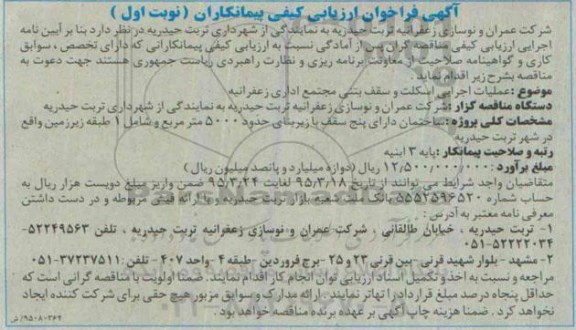 آگهی فراخوان ارزیابی کیفی پیمانکاران ( نوبت اول )
شرکت عمران و نوسازی زعفرانیه تربت حیدریه به نمایندگی از شهرداری تربت حیدریه در نظر دارد بنا بر آیین نامه
اجرایی ارزیابی کیفی مناقصه گران پس از آمادگی نسبت به ارزیابی کیفی پیمانکارانی که دارای تخصص ، سوابق
کاری و گواهینامه صلاحیت از معاونت برنامه ریزی و نظارت راهبردی ریاست جمهوری هستند جهت دعوت به
مناقصه بشرح زیر اقدام نماید .
موضوع : عملیات اجرایی اسکلت و سقف بتنی مجتمع اداری زعفرانیه
دستگاه مناقصه گزار : شرکت عمران و نوسازی زعفرانیه تربت حیدریه به نمایندگی از شهرداری تربت حیدریه
مشخصات کلی پروژه : ساختمان دارای پنج سقف با زیربنای حدود ۵۰۰۰ متر مربع و شامل ۱ طبقه زیرزمین واقع
در شهر تربت حیدریه
رتبه و صلاحیت پیمانکار : پایه ۳ ابنیه
مبلغ برآورد : ۱۲,۵۰۰,۰۰۰,۰۰۰ ریال (دوازده میلیارد و پانصد میلیون ریال)
متقاضیان واجد شرایط می توانند از تاریخ ۹۵/۳/۱۸ لغایت ۹۵/۳/۲۴ ضمن واریز مبلغ دویست هزار ریال به
حساب شماره ۵۵۵۲۵۹۶۵۲۰ بانک ملت شعبه بازار تربت حیدریه و با ارائه فیش مربوطه و در دست داشتن
معرفی نامه معتبر به آدرس :
۱- تربت حیدریه ، خیابان طالقانی ، شرکت عمران و نوسازی زعفرانیه تربت حیدریه ، تلفن ۵۲۲۴۹۵۶۳-
۰۵۱-۵۲۲۲۲۰۳۴
۲- مشهد - بلوار شهید قرنی -بین قرنی ۲۳ و ۲۵ -برج فروردین -طبقه ۴ -واحد ۴۰۷ - تلفن :۳۷۲۳۷۵۱۱-۰۵۱
مراجعه و نسبت به اخذ و تکمیل اسناد ارزیابی توان انجام کار اقدام نمایند. ضمنا اولویت با مناقصه گرانی است که
حداقل پنجاه درصد مبلغ قرارداد را تهاتر نمایند . ارائه مدارک و سوابق مزبور هیچ حقی برای شرکت کننده ایجاد
نخواهد کرد . ضمنا هزینه چاپ آگهی بر عهده برنده مناقصه خواهد بود.
۹۵۰۸۰۲۶۴/ ش